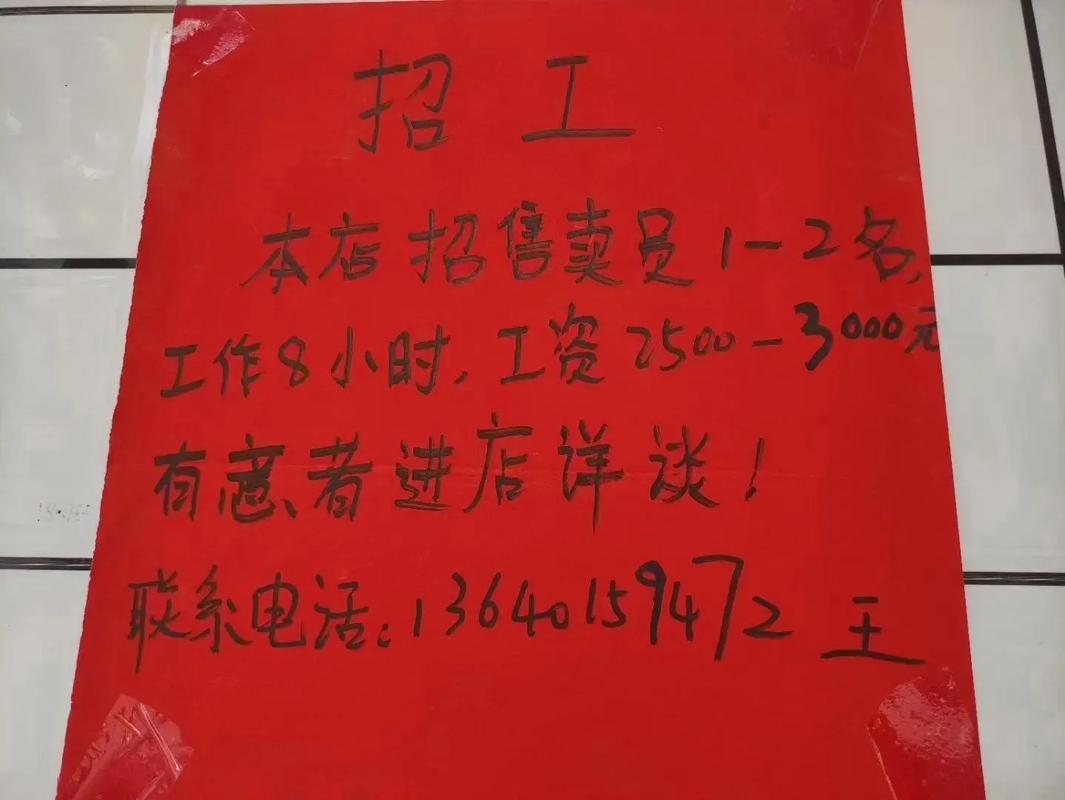 招工
本店招售卖员1-2名,
工作8小时,工资2500-3000元
有意者进店详谈!
联系电话:13640159472 王